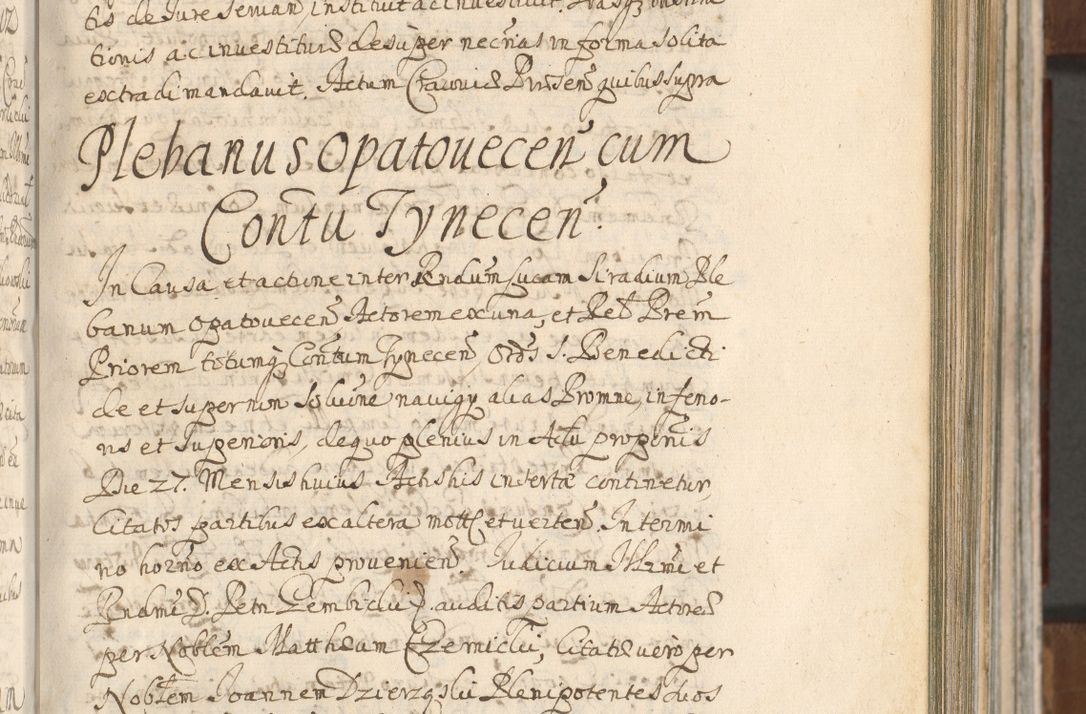 tis de Jure Seniam, instituit ac investivit.
tionis ac investiturę desuper necrias in forma solita
extradi mandavit. Actum Cracovię Prńsen̄ quibus supra
Plebanus Opatovecen̄ cum
Con̄tu Tynecen̄.
In Causa et actione inter Rndum Lucam Siradium Ple
banum Opatovecen̄ Actorem ex una, et Rel: Prem̄
Priorem totumq; Con̄tum Tynecen̄, Ord̄s S. Benedicti
de et super non solu͞ne navigy, alias Promne, infeno-
ris et superioris, de quo plenius in Actu propōnis
Die 27. Mensis huius Actis his insertæ continetur,
Citatos partibus ex altera mott: et verten̄. In termi
no hor̄no ex Actis provenien̄. Judicium Illrmi et
Rndmi D. Petri Gembicki E. auditis partium Actoreę
per Noblem Matthæum Czernicki, Citatę vero per
Noblem Joannem Dzierzgski Plenipotentes suos